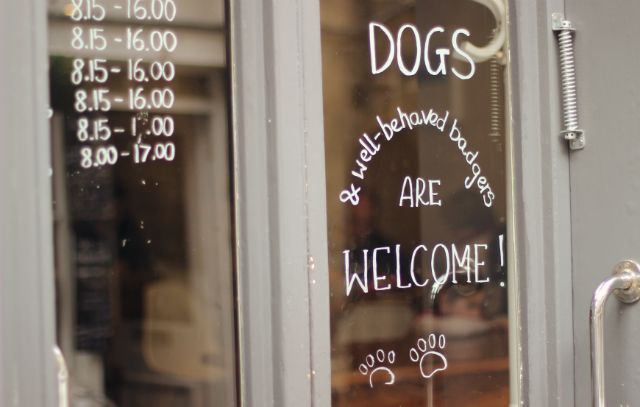 8.15-16.00
8.15-16.00
8.15-16.00
8.15-16.00
8.15-17.00
8.00-17.00
DOGS
& well-behaved badgers
ARE
WELCOME!